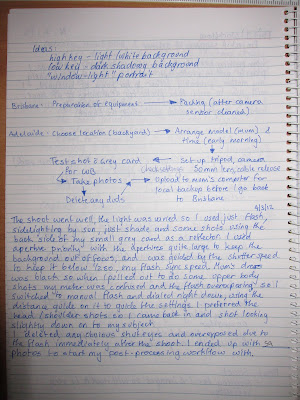 Ideas:
high key - light/white background
low key - dark shadowy background
"window-light" portrait
Brisbane: Preparation of equipment → Packing (after camera sensor cleaned)
Adelaide: Choose location (backyard) → Arrange model (mum) & time (early morning)
Test shot & grey card for CWB ← Set up tripod, camera 50mm lens, cable release
Take photos → Upload to mum's computer for local backup before I go back to Brisbane
Delete any duds
4/3/12
The shoot went well, the light was varied so I used just flash,
sidelighting by sun, just shade and some shots using the
back side of my small grey card as a reflector. I used
aperture priority with the aperture quite large to keep the
background out of focus, and was guided by the shutter speed
to keep it below 1/200, my flash sync speed. Mum's dress
was black so when I pulled out to do some upper body
shots my meter was confused and the flash overexposing so I
switched to manual flash and dialled right down, using the
distance guide on it to guide the settings. I preferred the
head/shoulder shots so I came back in and shot looking
slightly down on to my subject.
I deleted any obvious shut eyes and overexposed due to
the flash immediately after the shoot. I ended up with 59
photos to start my post-processing workflow with.